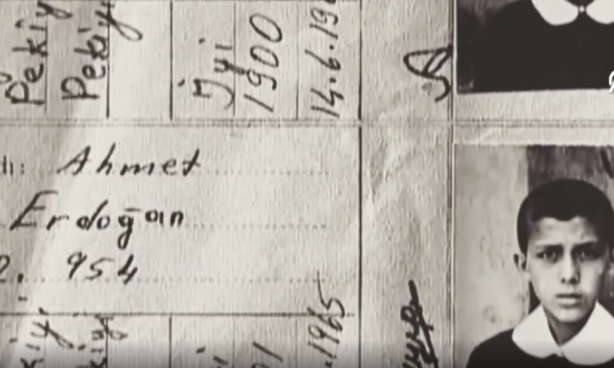 Pekiy
Pekiy
İyi
1900
14.6.19
dı: Ahmet
Erdoğan
2. 954
kiy.
kiy.
.1965